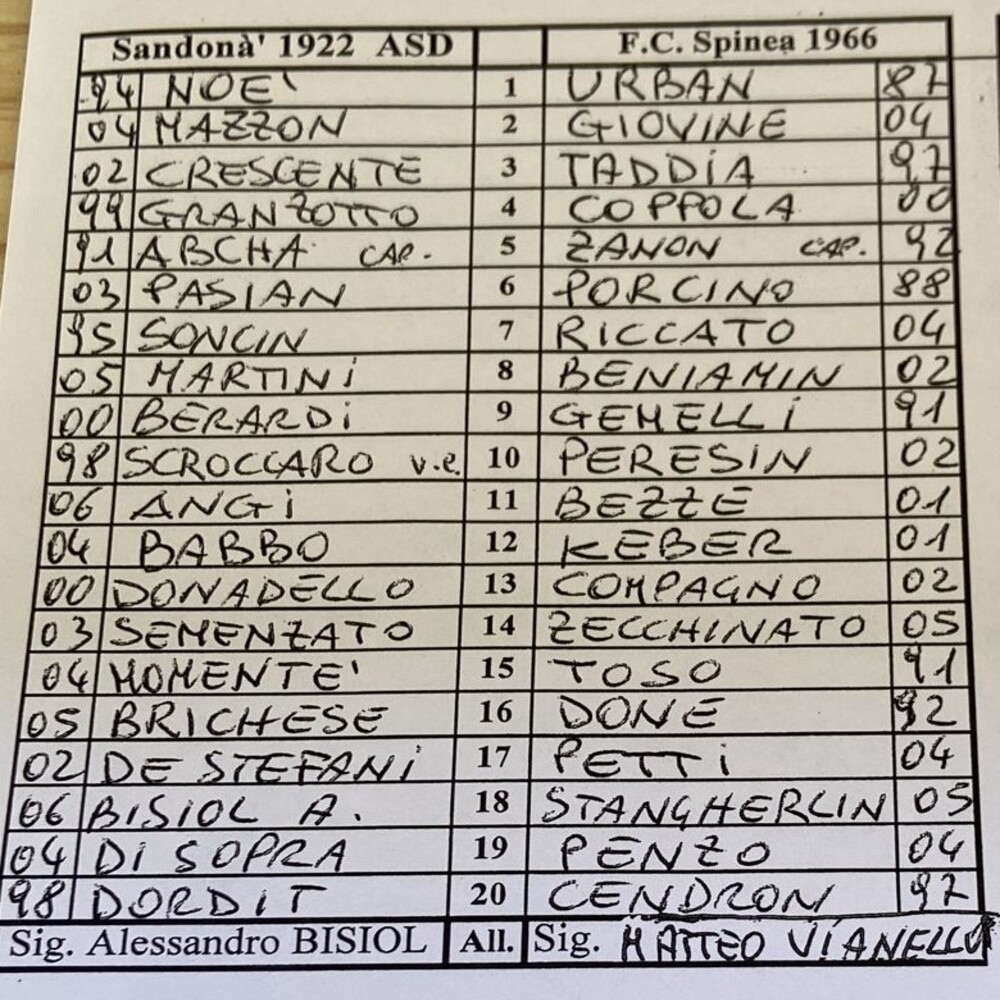 Sandonà' 1922 ASD F.C. Spinea 1966
94 NOE' 1 URBAN 87
04 MAZZON 2 GIOVINE 04
02 CRESCENTE 3 TADDIA 97
99 GRANZOTTO 4 COPPOLA 00
91 ABCHA CAP. 5 ZANON CAP. 92
03 PASIAN 6 PORCINO 88
95 SONCIN 7 RICCATO 04
05 MARTINI 8 BENIAMIN 02
00 BERARDI 9 GEMELLI 91
98 SCROCCARO v.c. 10 PERESIN 02
06 ANGI 11 BEZZE 01
04 BABBO 12 KEBER 01
00 DONADELLO 13 COMPAGNO 02
03 SEMENZATO 14 ZECCHINATO 05
04 MOMENTE' 15 TOSO 91
05 BRICHESE 16 DONE 92
02 DE STEFANI 17 PETTI 04
06 BISIOL A. 18 STANGHERLIN 05
04 DI SOPRA 19 PENZO 04
98 DORDIT 20 CENDRON 97
Sig. Alessandro BISIOL All. Sig. MATTEO VIANELLO